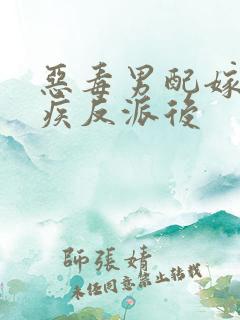 惡毒男配嫁
疾反派後
師張婧
未经同意禁止转载